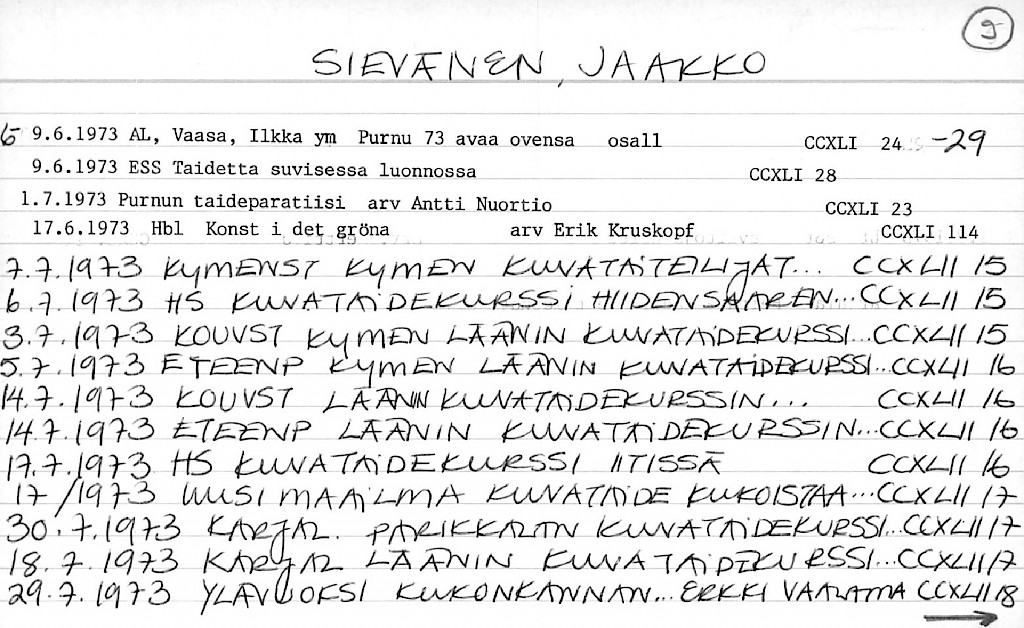 9
SIEVÄNEN, JAAKKO
6 9.6.1973 AL, Vaasa, Ilkka ym Purnu 73 avaa ovensa osall CCXLI 24 -29
9.6.1973 ESS Taidetta suvisessa luonnossa CCXLI 28
1.7.1973 Purnun taideparatiisi arv Antti Nuortio CCXLI 23
17.6.1973 Hbl Konst i det gröna arv Erik Kruskopf CCXLI 114
7.7.1973 KYMENST KYMEN KUVATAITEILIJAT... CCXLII 15
6.7.1973 HS KUVATAIDEKURSSI HIIDENSAAREN... CCXLII 15
3.7.1973 KOUVST KYMEN LÄÄNIN KUVATAIDEKURSSI... CCXLII 15
5.7.1973 ETEENP KYMEN LÄÄNIN KUVATAIDEKURSSI... CCXLII 16
14.7.1973 KOUVST LÄÄNIN KUVATAIDEKURSSIN... CCXLII 16
14.7.1973 ETEENP LÄÄNIN KUVATAIDEKURSSIN... CCXLII 16
17.7.1973 HS KUVATAIDEKURSSI IITISSÄ CCXLII 16
17/1973 UUSI MAAILMA KUVATAIDE KUKOISTAA... CCXLII 17
30.7.1973 KARJAL. PARIKKALAN KUVATAIDEKURSSI... CCXLII 17
18.7.1973 KARJAL LÄÄNIN KUVATAIDEKURSSI... CCXLII 17
29.7.1973 YLÄVUOKSI KUKONKANNAN... ERKKI VAALAMA CCXLII 18